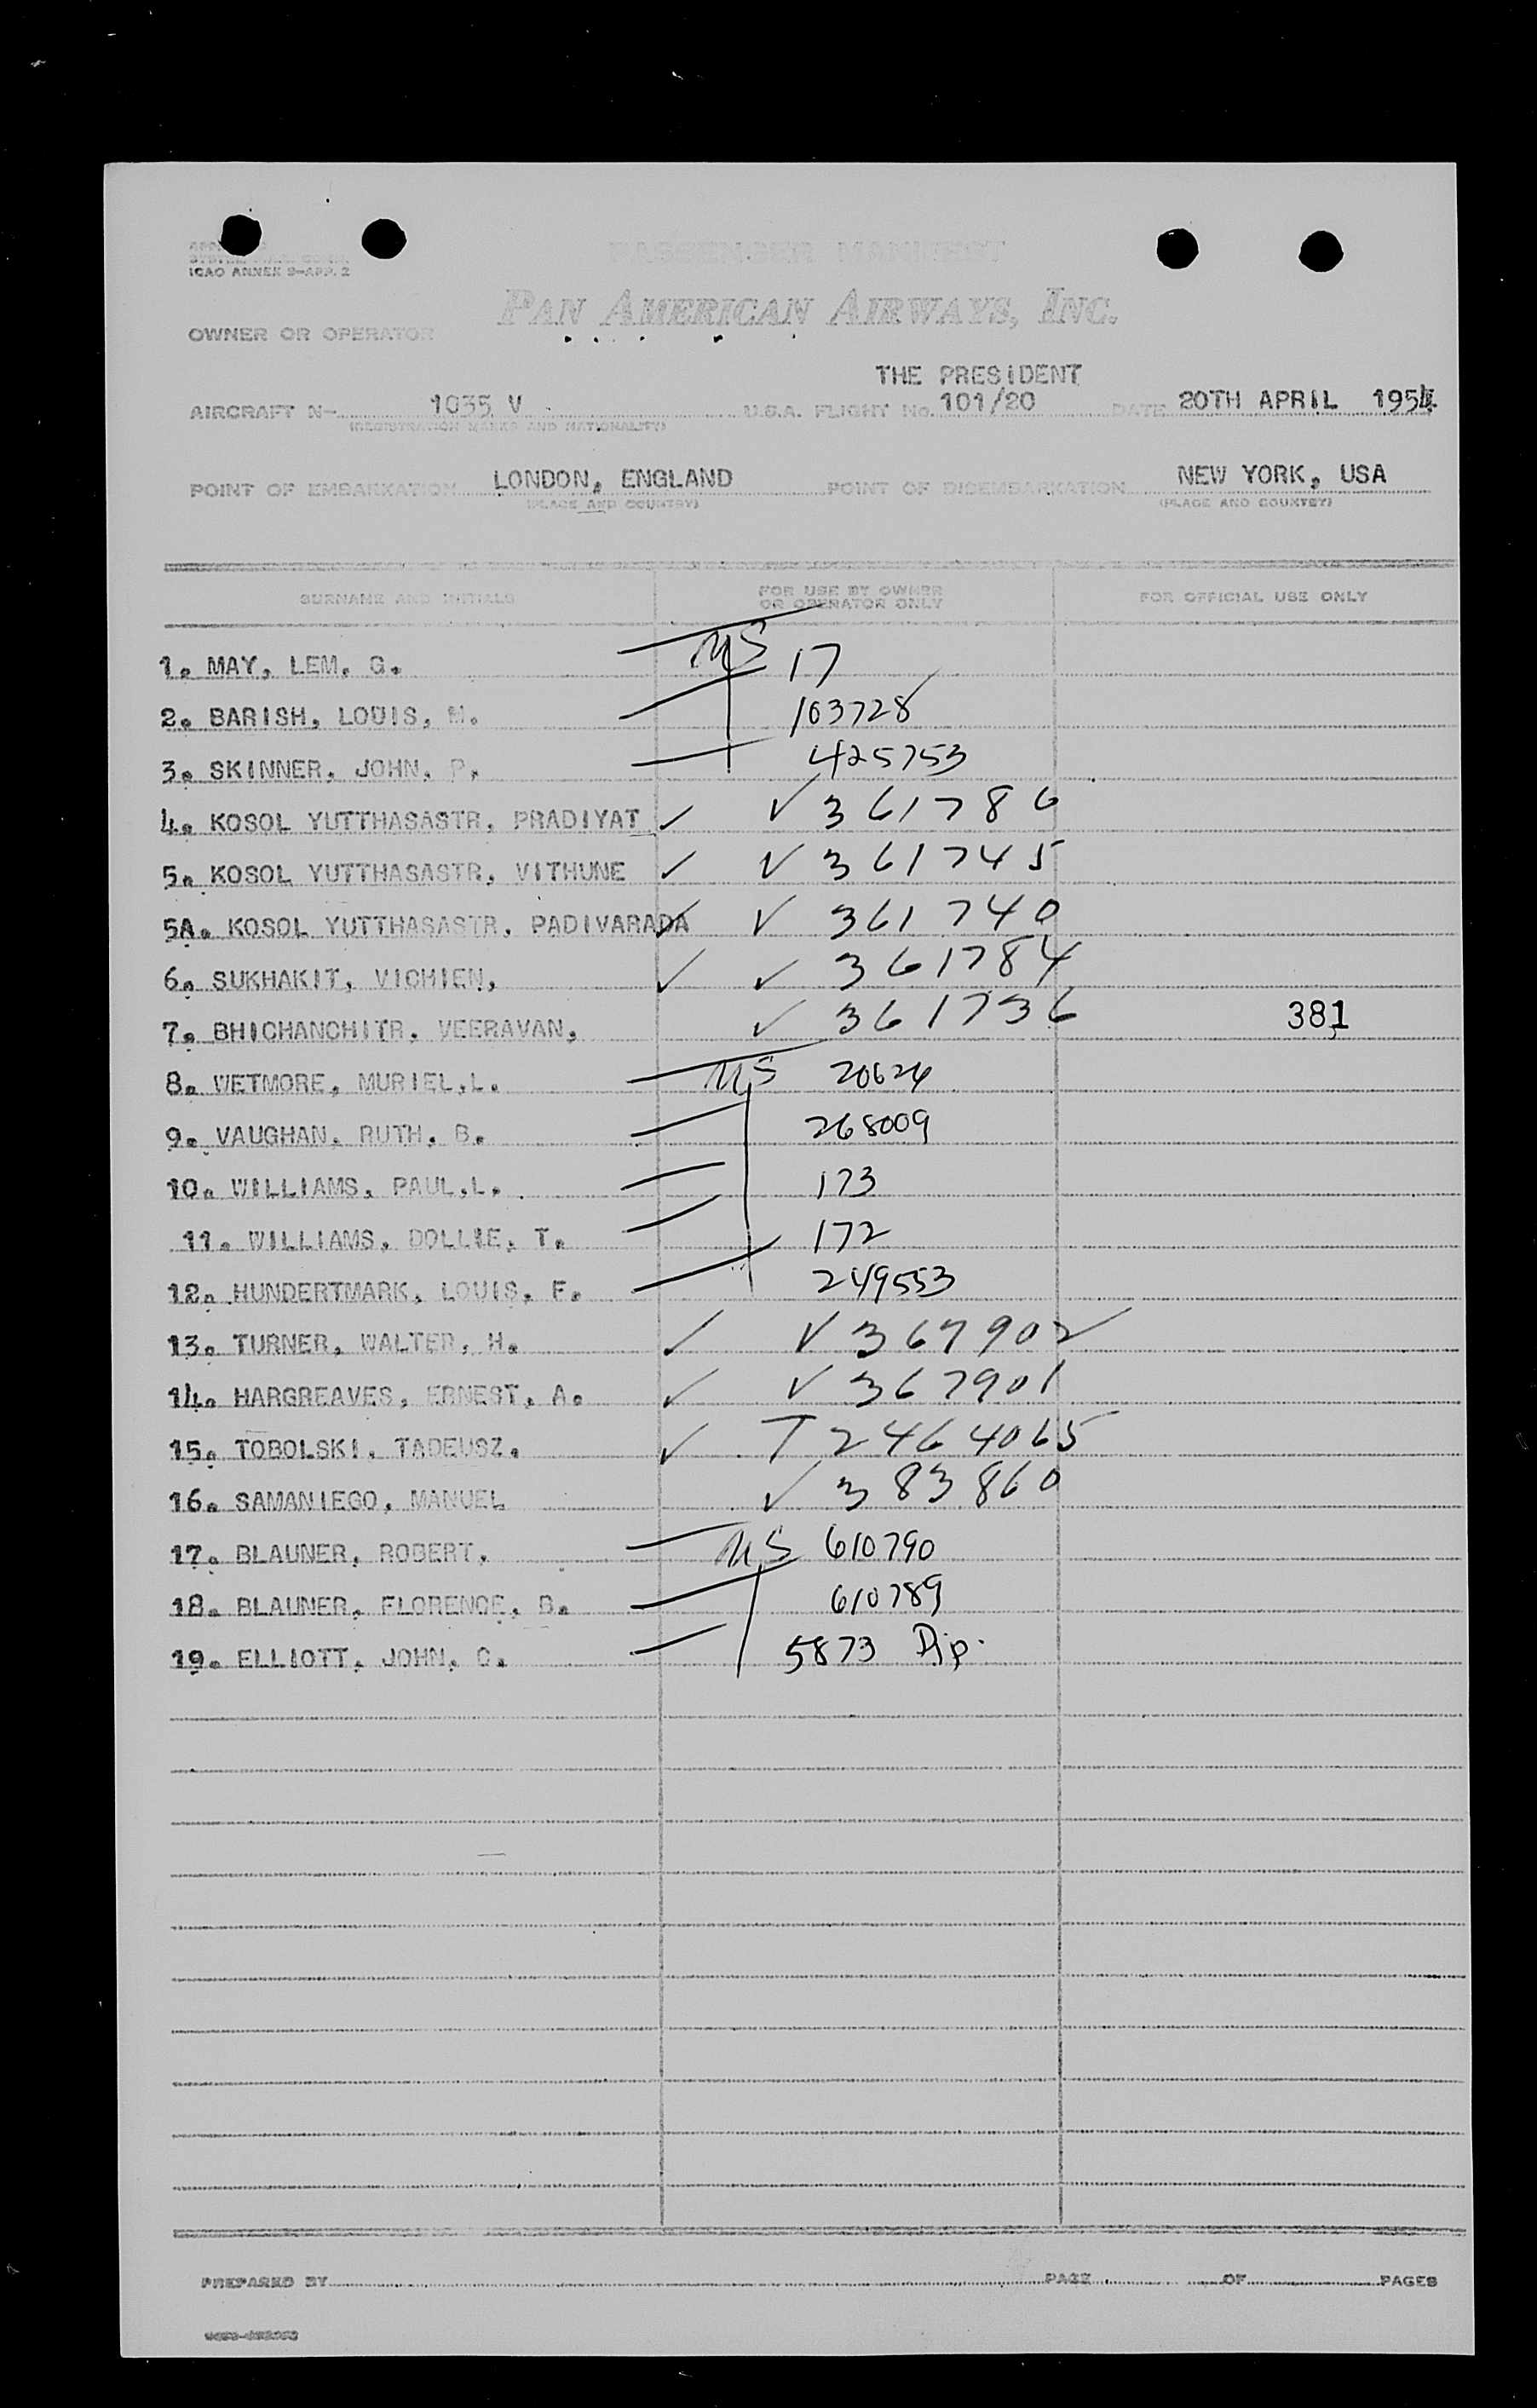 ICAO ANNEX 9-APP. 2
PASSENGER MANIFEST
PAN AMERICAN AIRWAYS, INC.
OWNER OR OPERATOR
THE PRESIDENT
AIRCRAFT N- 1035 V U.S.A. FLIGHT No. 101/20 DATE 20TH APRIL 1954
(REGISTRATION MARKS AND NATIONALITY)
POINT OF EMBARKATION LONDON, ENGLAND POINT OF DISEMBARKATION NEW YORK, USA
(PLACE AND COUNTRY) (PLACE AND COUNTRY)
SURNAME AND INITIALS FOR USE BY OWNER OR OPERATOR ONLY FOR OFFICIAL USE ONLY
1. MAY, LEM, G. US 17
2. BARISH, LOUIS, M. 103728
3. SKINNER, JOHN, P. 425753
4. KOSOL YUTTHASASTR, PRADIYAT ✓ V 361786
5. KOSOL YUTTHASASTR, VITHUNE ✓ V 361745
5A. KOSOL YUTTHASASTR, PADIVARADA ✓ V 361740
6. SUKHAKIT, VICHIEN, ✓ V 361784
7. BHICHANCHITR, VEERAVAN, V 361736 381
8. WETMORE, MURIEL,L. US 20624
9. VAUGHAN, RUTH, B. 268009
10. WILLIAMS, PAUL,L. 173
11. WILLIAMS, DOLLIE, T. 172
12. HUNDERTMARK, LOUIS, F. 249553
13. TURNER, WALTER, H. ✓ V 367902
14. HARGREAVES, ERNEST, A. ✓ V 367901
15. TOBOLSKI, TADEUSZ. ✓ T 2464065
16. SAMANIEGO, MANUEL V 383860
17. BLAUNER, ROBERT, US 610790
18. BLAUNER, FLORENCE, B. 610789
19. ELLIOTT, JOHN, C. 5873 Dip.
PREPARED BY PAGE OF PAGES